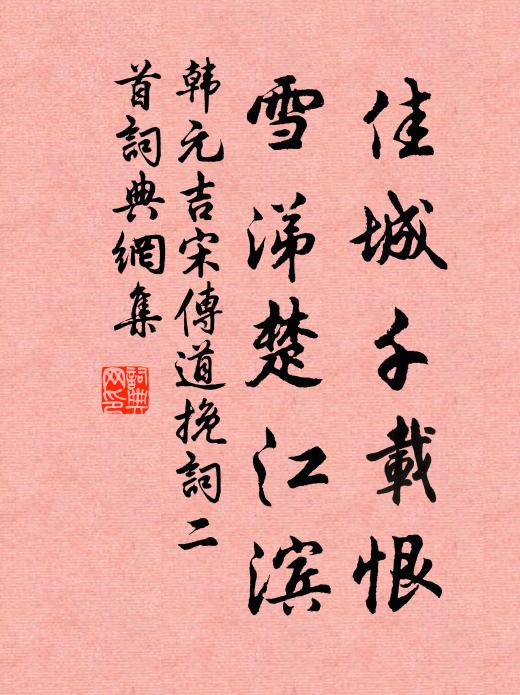 佳城千載恨
雪涕楚江滨
韩元吉宋傳道挽詞二
首詞典網集
詞典网印